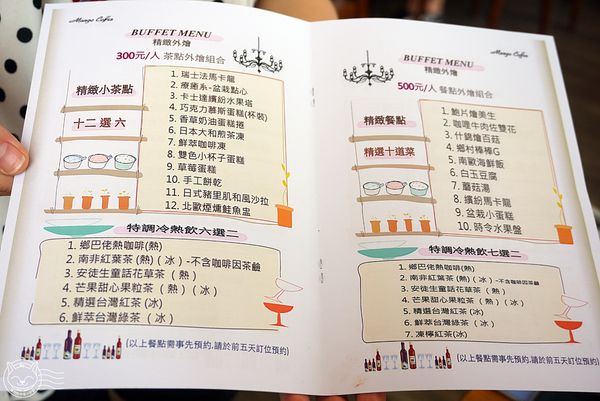 Mango Coffee
BUFFET MENU
精緻外燴
300元/人 茶點外燴組合
精緻小茶點
十二選六
1. 瑞士法馬卡龍
2. 療癒系-盆栽點心
3. 卡士達繽紛水果塔
4. 巧克力慕斯蛋糕(杯裝)
5. 香草奶油蛋糕捲
6. 日本大和煎茶凍
7. 鮮萃咖啡凍
8. 雙色小杯子蛋糕
9. 草莓蛋糕
10. 手工餅乾
11. 日式豬里肌和風沙拉
12. 北歐煙燻鮭魚盅
特調冷熱飲六選二
1. 鄉巴佬熱咖啡(熱)
2. 南非紅葉茶(熱)(冰)-不含咖啡因茶鹼
3. 安徒生童話花草茶(熱)
4. 芒果甜心果粒茶(熱)(冰)
5. 精選台灣紅茶(冰)
6. 鮮萃台灣綠茶(冰)
(以上餐點需事先預約,請於前五天訂位預約)
Mango Coffee
BUFFET MENU
精緻外燴
500元/人 餐點外燴組合
精緻餐點
精選十道菜
1. 鮑片燴美生
2. 咖哩牛肉佐雙花
3. 什錦燴百菇
4. 鄉村棒棒G
5. 南歐海鮮飯
6. 白玉豆腐
7. 蘑菇湯
8. 繽紛馬卡龍
9. 盆栽小蛋糕
10. 時令水果盤
特調冷熱飲七選二
1. 鄉巴佬熱咖啡(熱)
2. 南非紅葉茶(熱)(冰)-不含咖啡因茶鹼
3. 安徒生童話花草茶(熱)
4. 芒果甜心果粒茶(熱)(冰)
5. 精選台灣紅茶(冰)
6. 鮮萃台灣綠茶(冰)
7. 凍檸紅茶(冰)
(以上餐點需事先預約,請於前五天訂位預約)